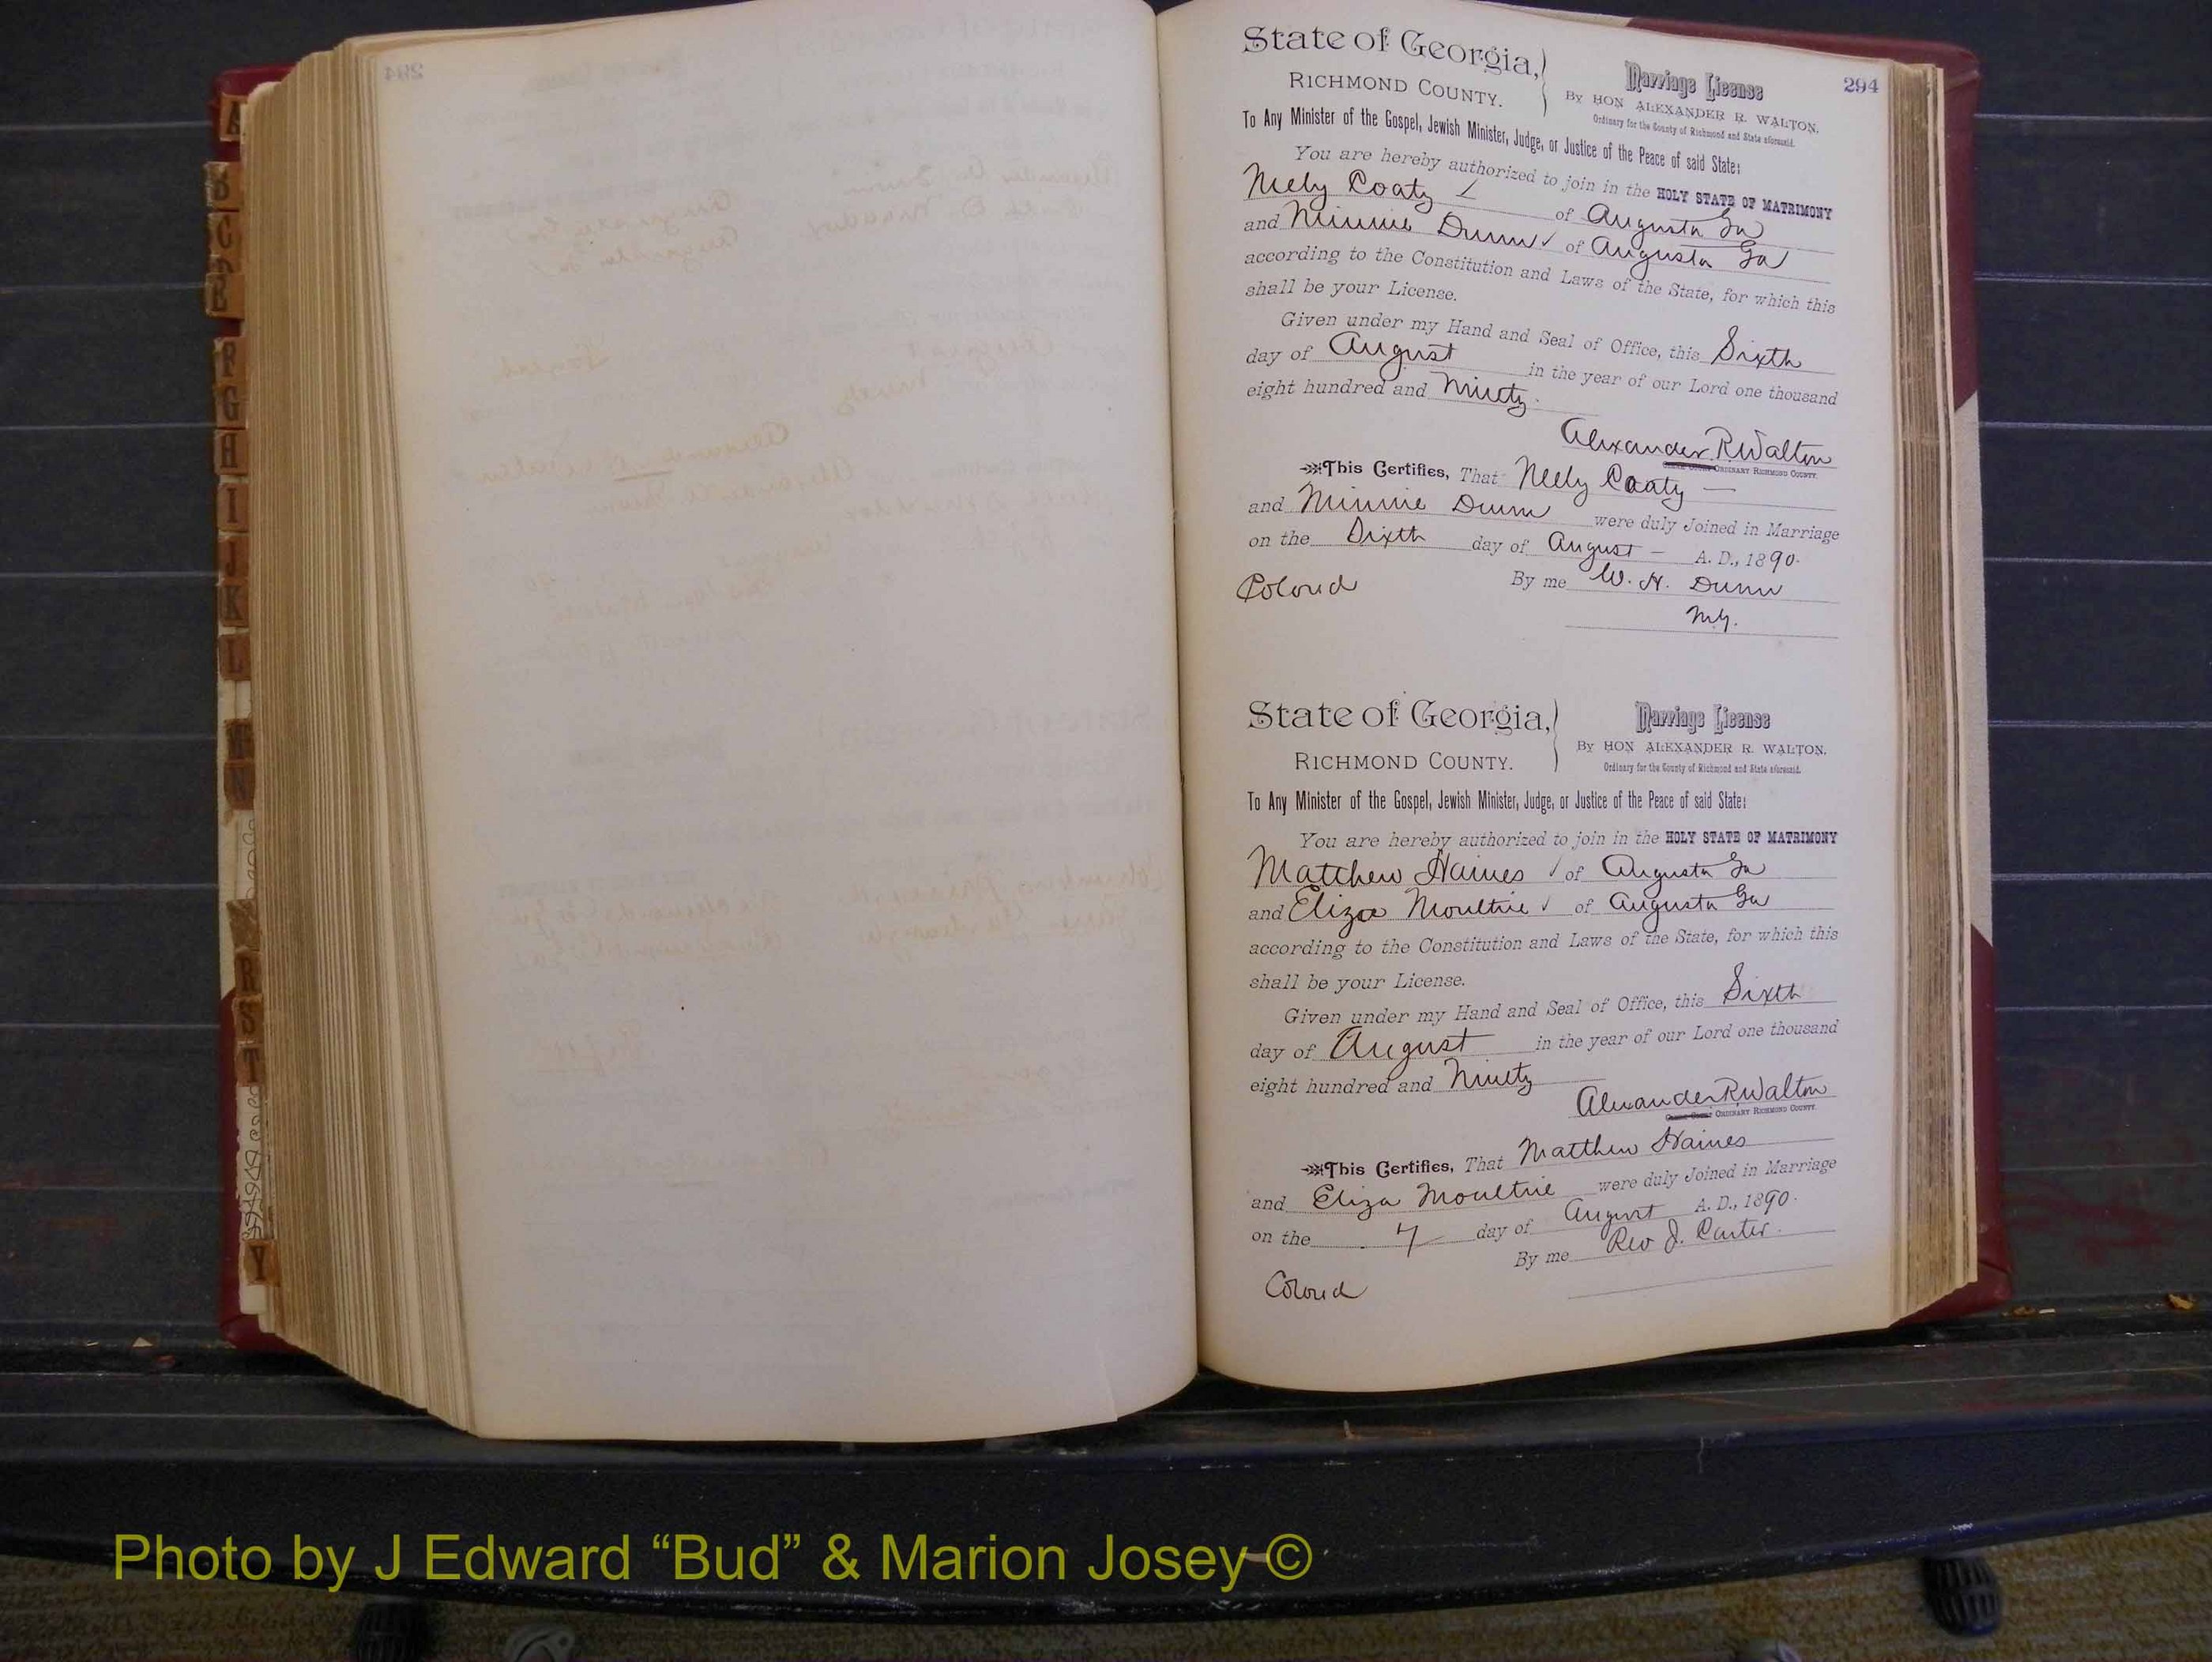 294
State of Georgia,
RICHMOND COUNTY.
Marriage License
By HON ALEXANDER R. WALTON.
Ordinary for the County of Richmond and State aforesaid.
To Any Minister of the Gospel, Jewish Minister, Judge, or Justice of the Peace of said State:
You are hereby authorized to join in the HOLY STATE OF MATRIMONY
Neely Coaty of Augusta Ga
and Minnie Dunn of Augusta Ga
according to the Constitution and Laws of the State, for which this
shall be your License.
Given under my Hand and Seal of Office, this Sixth
day of August in the year of our Lord one thousand
eight hundred and Ninety.
Alexander R. Walton
ORDINARY RICHMOND COUNTY.
This Certifies, That Neely Coaty —
and Minnie Dunn were duly Joined in Marriage
on the Sixth day of August — A. D., 1890.
Colored By me W. H. Dunn
M.G.
State of Georgia,
RICHMOND COUNTY.
Marriage License
By HON ALEXANDER R. WALTON.
Ordinary for the County of Richmond and State aforesaid.
To Any Minister of the Gospel, Jewish Minister, Judge, or Justice of the Peace of said State:
You are hereby authorized to join in the HOLY STATE OF MATRIMONY
Matthew Haines of Augusta Ga
and Eliza Moultrie of Augusta Ga
according to the Constitution and Laws of the State, for which this
shall be your License.
Given under my Hand and Seal of Office, this Sixth
day of August in the year of our Lord one thousand
eight hundred and Ninety
Alexander R. Walton
ORDINARY RICHMOND COUNTY.
This Certifies, That Matthew Haines
and Eliza Moultrie were duly Joined in Marriage
on the 7 day of August A. D., 1890.
By me Rev J. Carter.
Colored
A
B
C
F
G
H
I
J
K
L
N
R
S
T
Y
Photo by J Edward “Bud” & Marion Josey ©